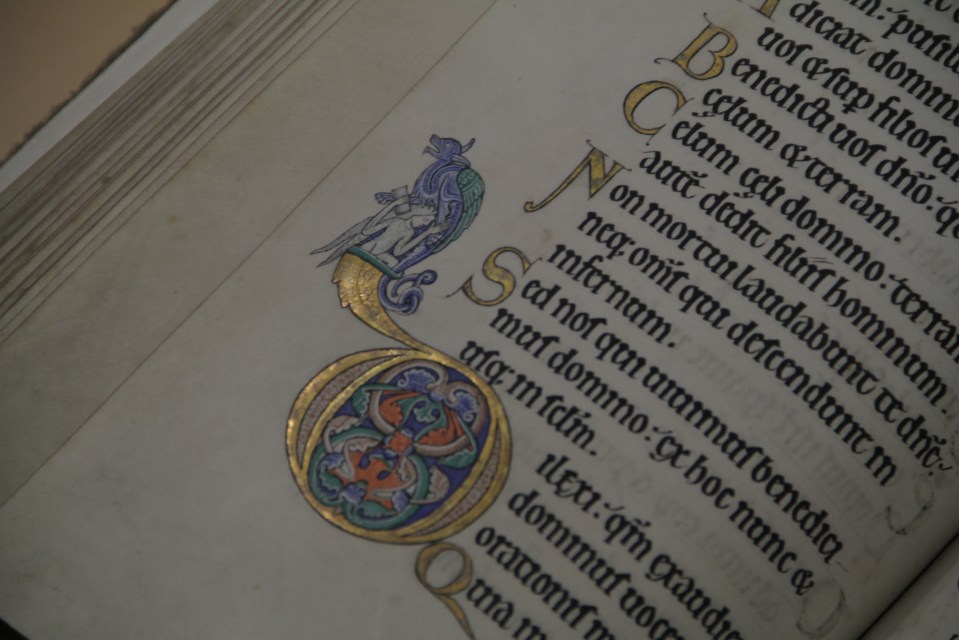 pusill
diciat domin
uos & sup filios u
Benedicti uos dño: q
cęlum & terram.
Celum cęli domino: terram
autē dedit filiis hominum.
Non mortui laudabunt te dñe:
neq; om̄s qui descendunt in
infernum.
Sed nos qui uiuimus benedici
mus domino: ex hoc nunc &
usq; in sc̄lm.
Dilexi. qm̄ exaudi
dominus uoce
orationis m
Quia in